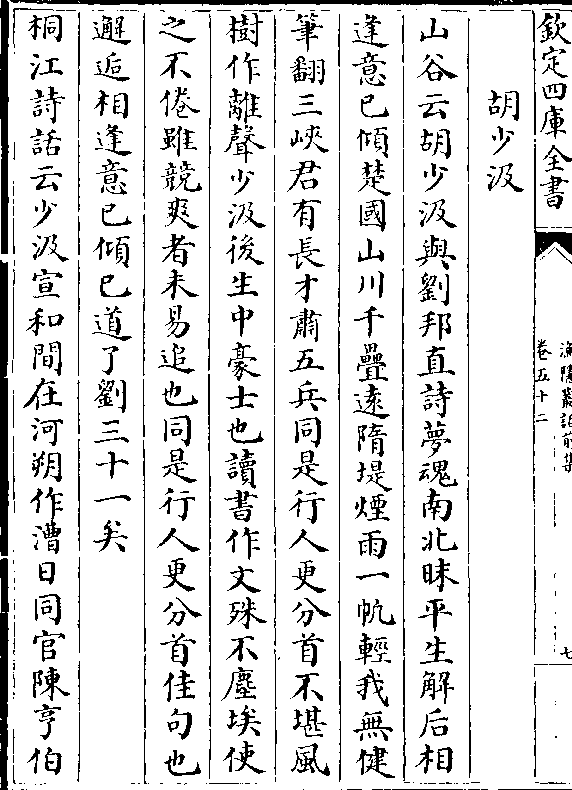 欽定四庫全書
漁隱叢話前集
卷五十二
七
胡少汲
山谷云胡少汲與劉邦直詩夢魂南北昧平生解后相
逢意已傾楚國山川千疊遠隋堤煙雨一帆輕我無健
筆翻三峽君有長才肅五兵同是行人更分首不堪風
樹作離聲少汲後生中豪士也讀書作文殊不塵埃使
之不倦雖競爽者未易追也同是行人更分首佳句也
邂逅相逢意已傾已道了劉三十一矣
桐江詩話云少汲宣和間在河朔作漕日同官陳亨伯